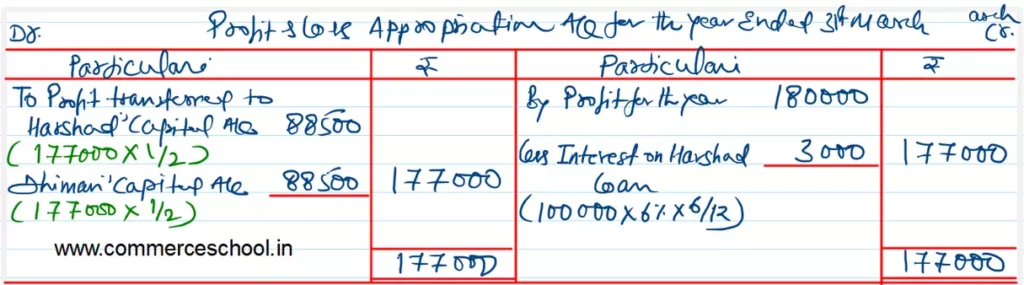 Profit & Loss Appropriation A/c for the year Ended 31st March
arch
Dr.
Cr.
Particulars ₹ Particulars ₹
To Profit transferred to By Profit for the year 180000
Harshad's Capital A/c 88500
(177000 X 1/2) Less Interest on Harshad 3000 177000
Dhiman's Capital A/c 88500 177000 Loan
(177000 X 1/2) (100000 X 6% X 6/12)
www.commerceschool.in
177000 177000